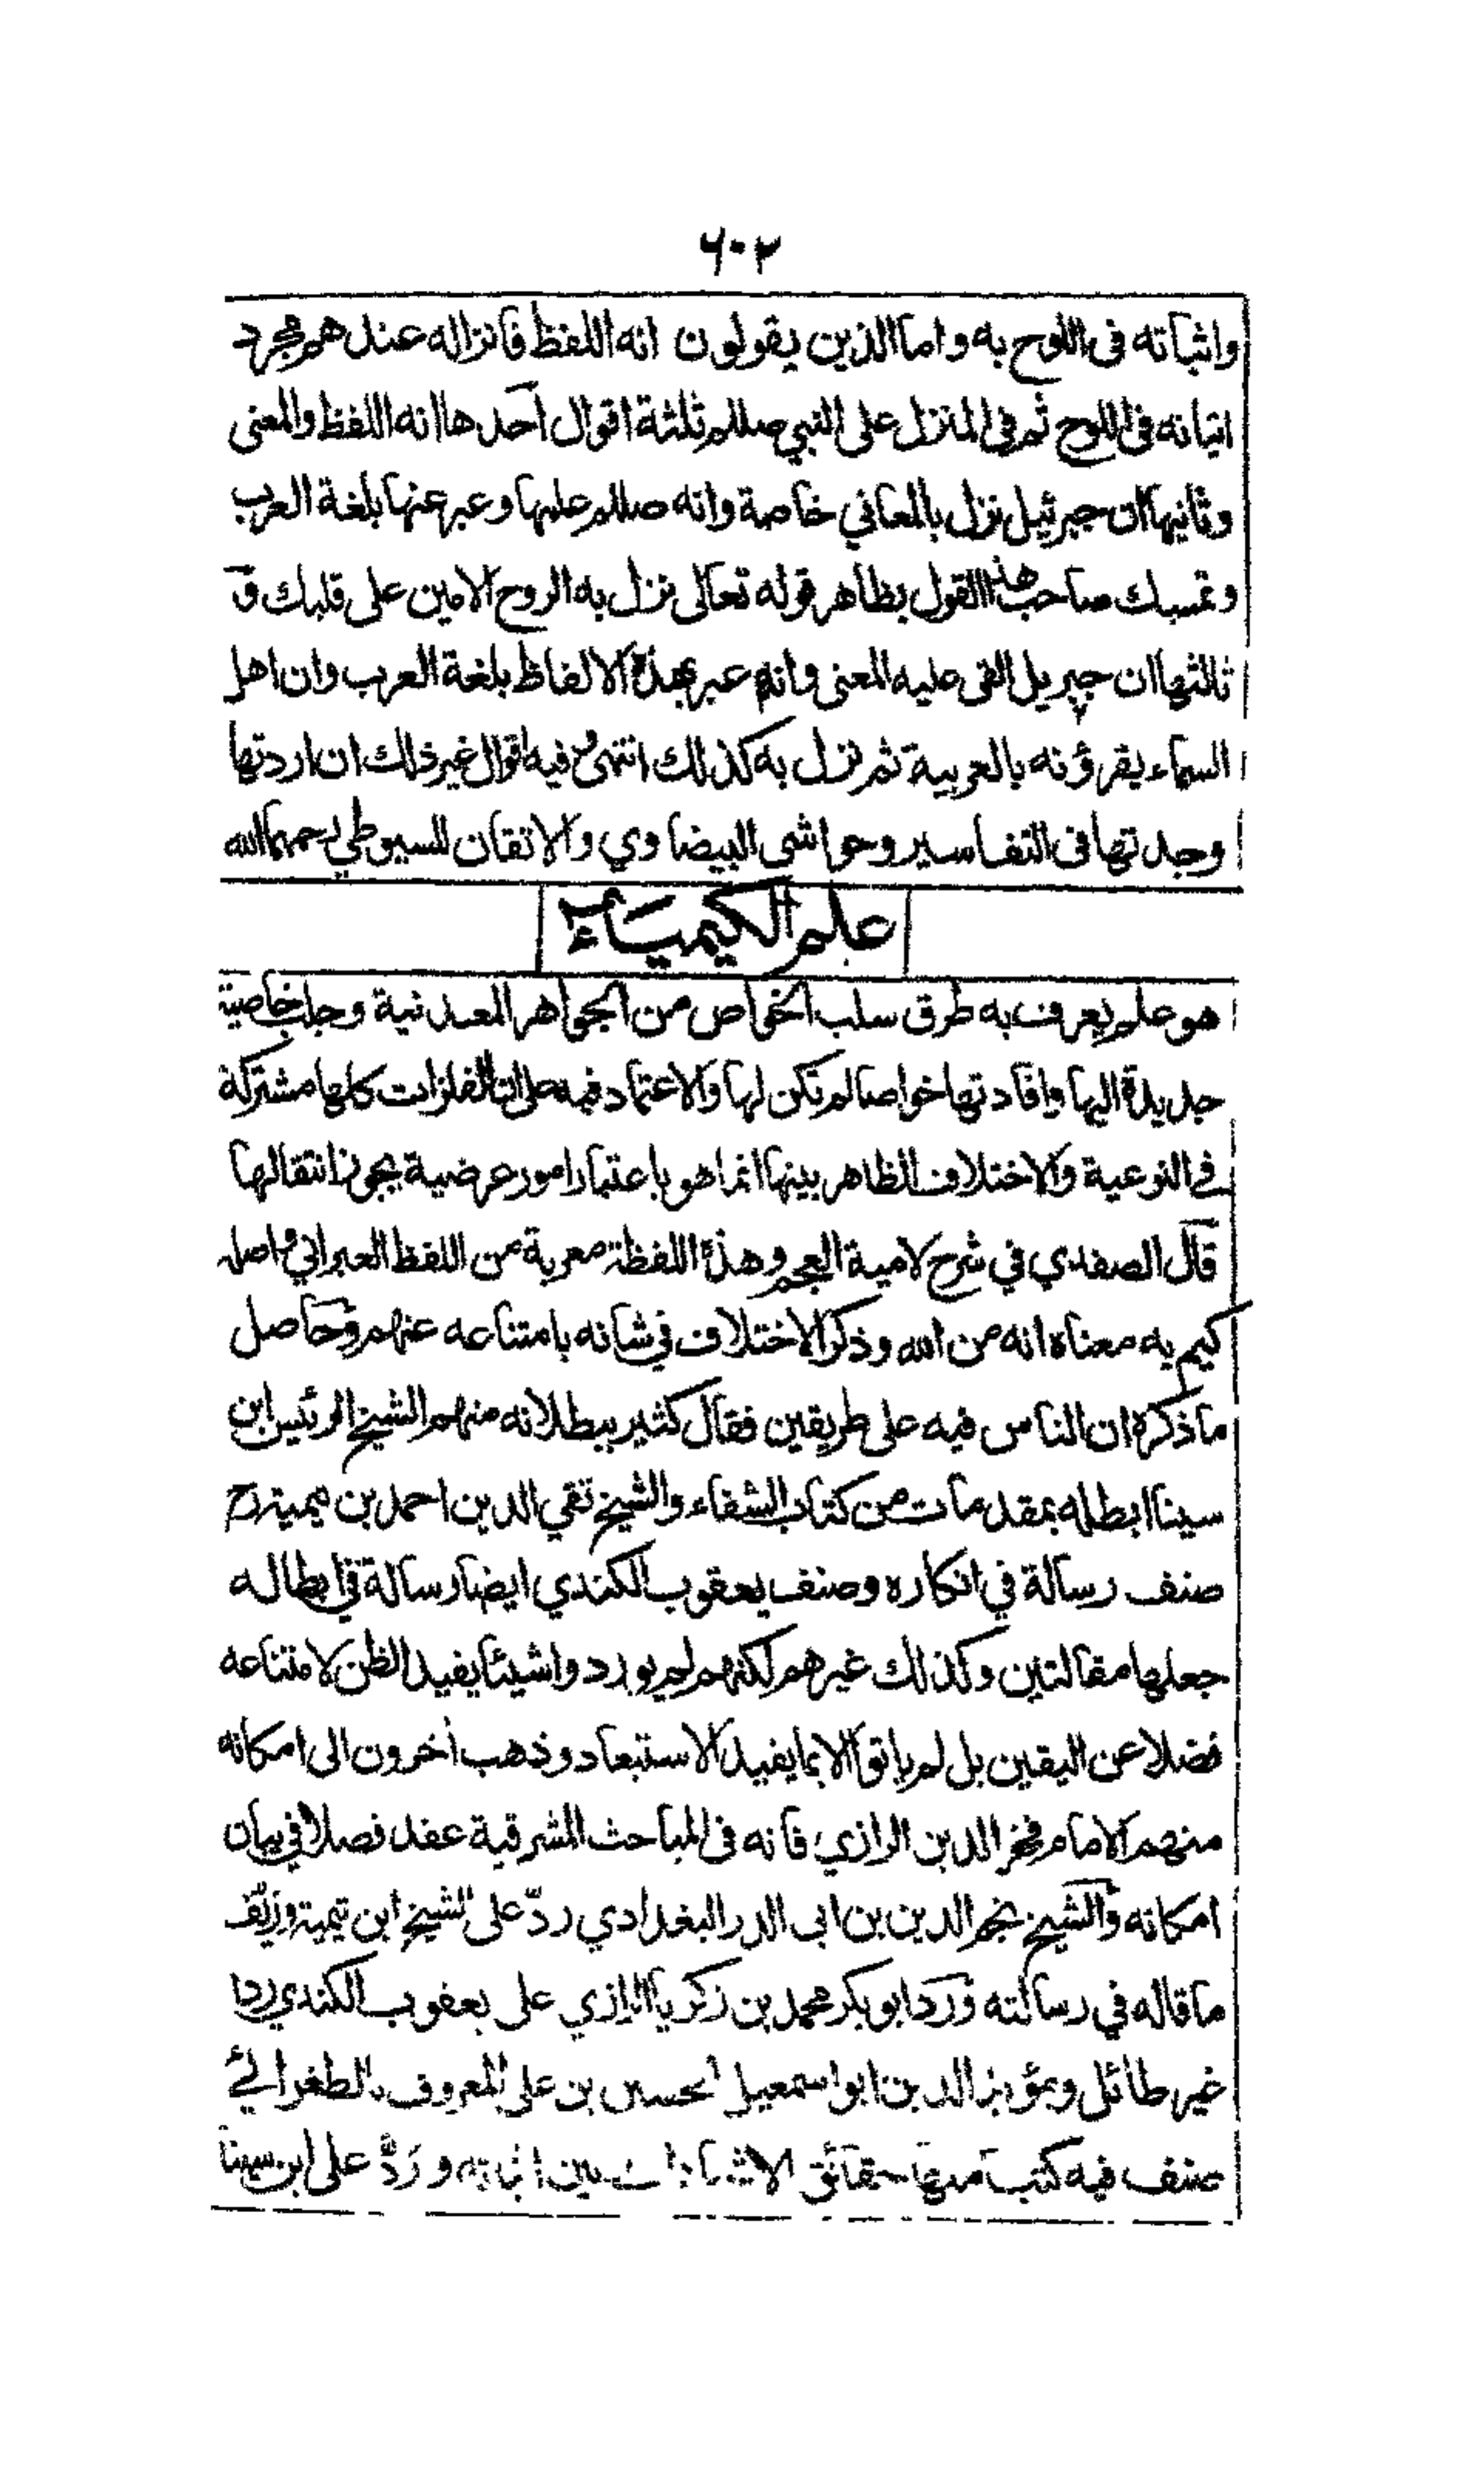 ٦٠٢
واثباته فى اللوح به واما الذين يقولون انه اللفظ فانزاله عندهم مجرد
اثباته فى اللوح ثم فى المنزل على النبي صللم ثلثة اقوال احدها انه اللفظ والمعنى
وثانيها ان جبرئيل نزل بالمعاني خاصة وانه صللم علمها وعبر عنها بلغة العرب
وتمسك صاحب هذا القول بظاهر قوله تعالى نزل به الروح الامين على قلبك وَ
ثالثها ان جبريل القى عليه المعنى وانه عبر بهذه الالفاظ بلغة العرب وان اهل
السماء يقرؤنه بالعربية ثم نزل به كذلك انتهى وفيه اقوال غير ذلك ان اردتها
وجدتها فى التفاسير وحواشى البيضاوي والاتقان للسيوطي رحمهما الله
علم الكيمياء
هو علم يعرف به طرق سلب الخواص من الجواهر المعدنية وجلب خاصية
جديدة اليها وافادتها خواصا لم تكن لها والاعتماد فيه على ان الفلزات كلها مشتركة
فى النوعية والاختلاف الظاهر بينها انما هو باعتبار امور عرضية يجوز انتقالها
قال الصفدي في شرح لامية العجم وهذه اللفظة معربة من اللفظ العبراني واصله
كيم يه معناه انه من الله وذكر الاختلاف في شانه بامتناعه عنهم وحاصل
ما ذكره ان الناس فيه على طريقين فقال كثير ببطلانه منهم الشيخ الرئيس ابن
سينا ابطله بمقدمات من كتاب الشفاء والشيخ تقي الدين احمد بن تيمية رح
صنف رسالة في انكاره وصنف يعقوب الكندي ايضا رسالة في ابطاله
جعلها مقالتين وكذلك غيرهم لكنهم لم يوردوا شيئا يفيد الظن لامتناعه
فضلا عن اليقين بل لم ياتوا الا بما يفيد الاستبعاد وذهب أخرون الى امكانه
منهم الامام فخر الدين الرازي فانه فى المباحث المشرقية عقد فصلا في بيان
امكانه والشيخ نجم الدين بن ابى الدر البغدادي ردّ على الشيخ ابن تيمية وزيّف
ما قاله في رسالته ورَد ابو بكر محمد بن زكريا الرازي على يعقوب الكندي ردا
غير طائل ومؤيد الدين ابو اسمعيل الحسين بن على المعروف بالطغرائے
صنف فيه كتبا منها حقائق الاستشهادات وبين اثباته ورَدَّ على ابن سينا